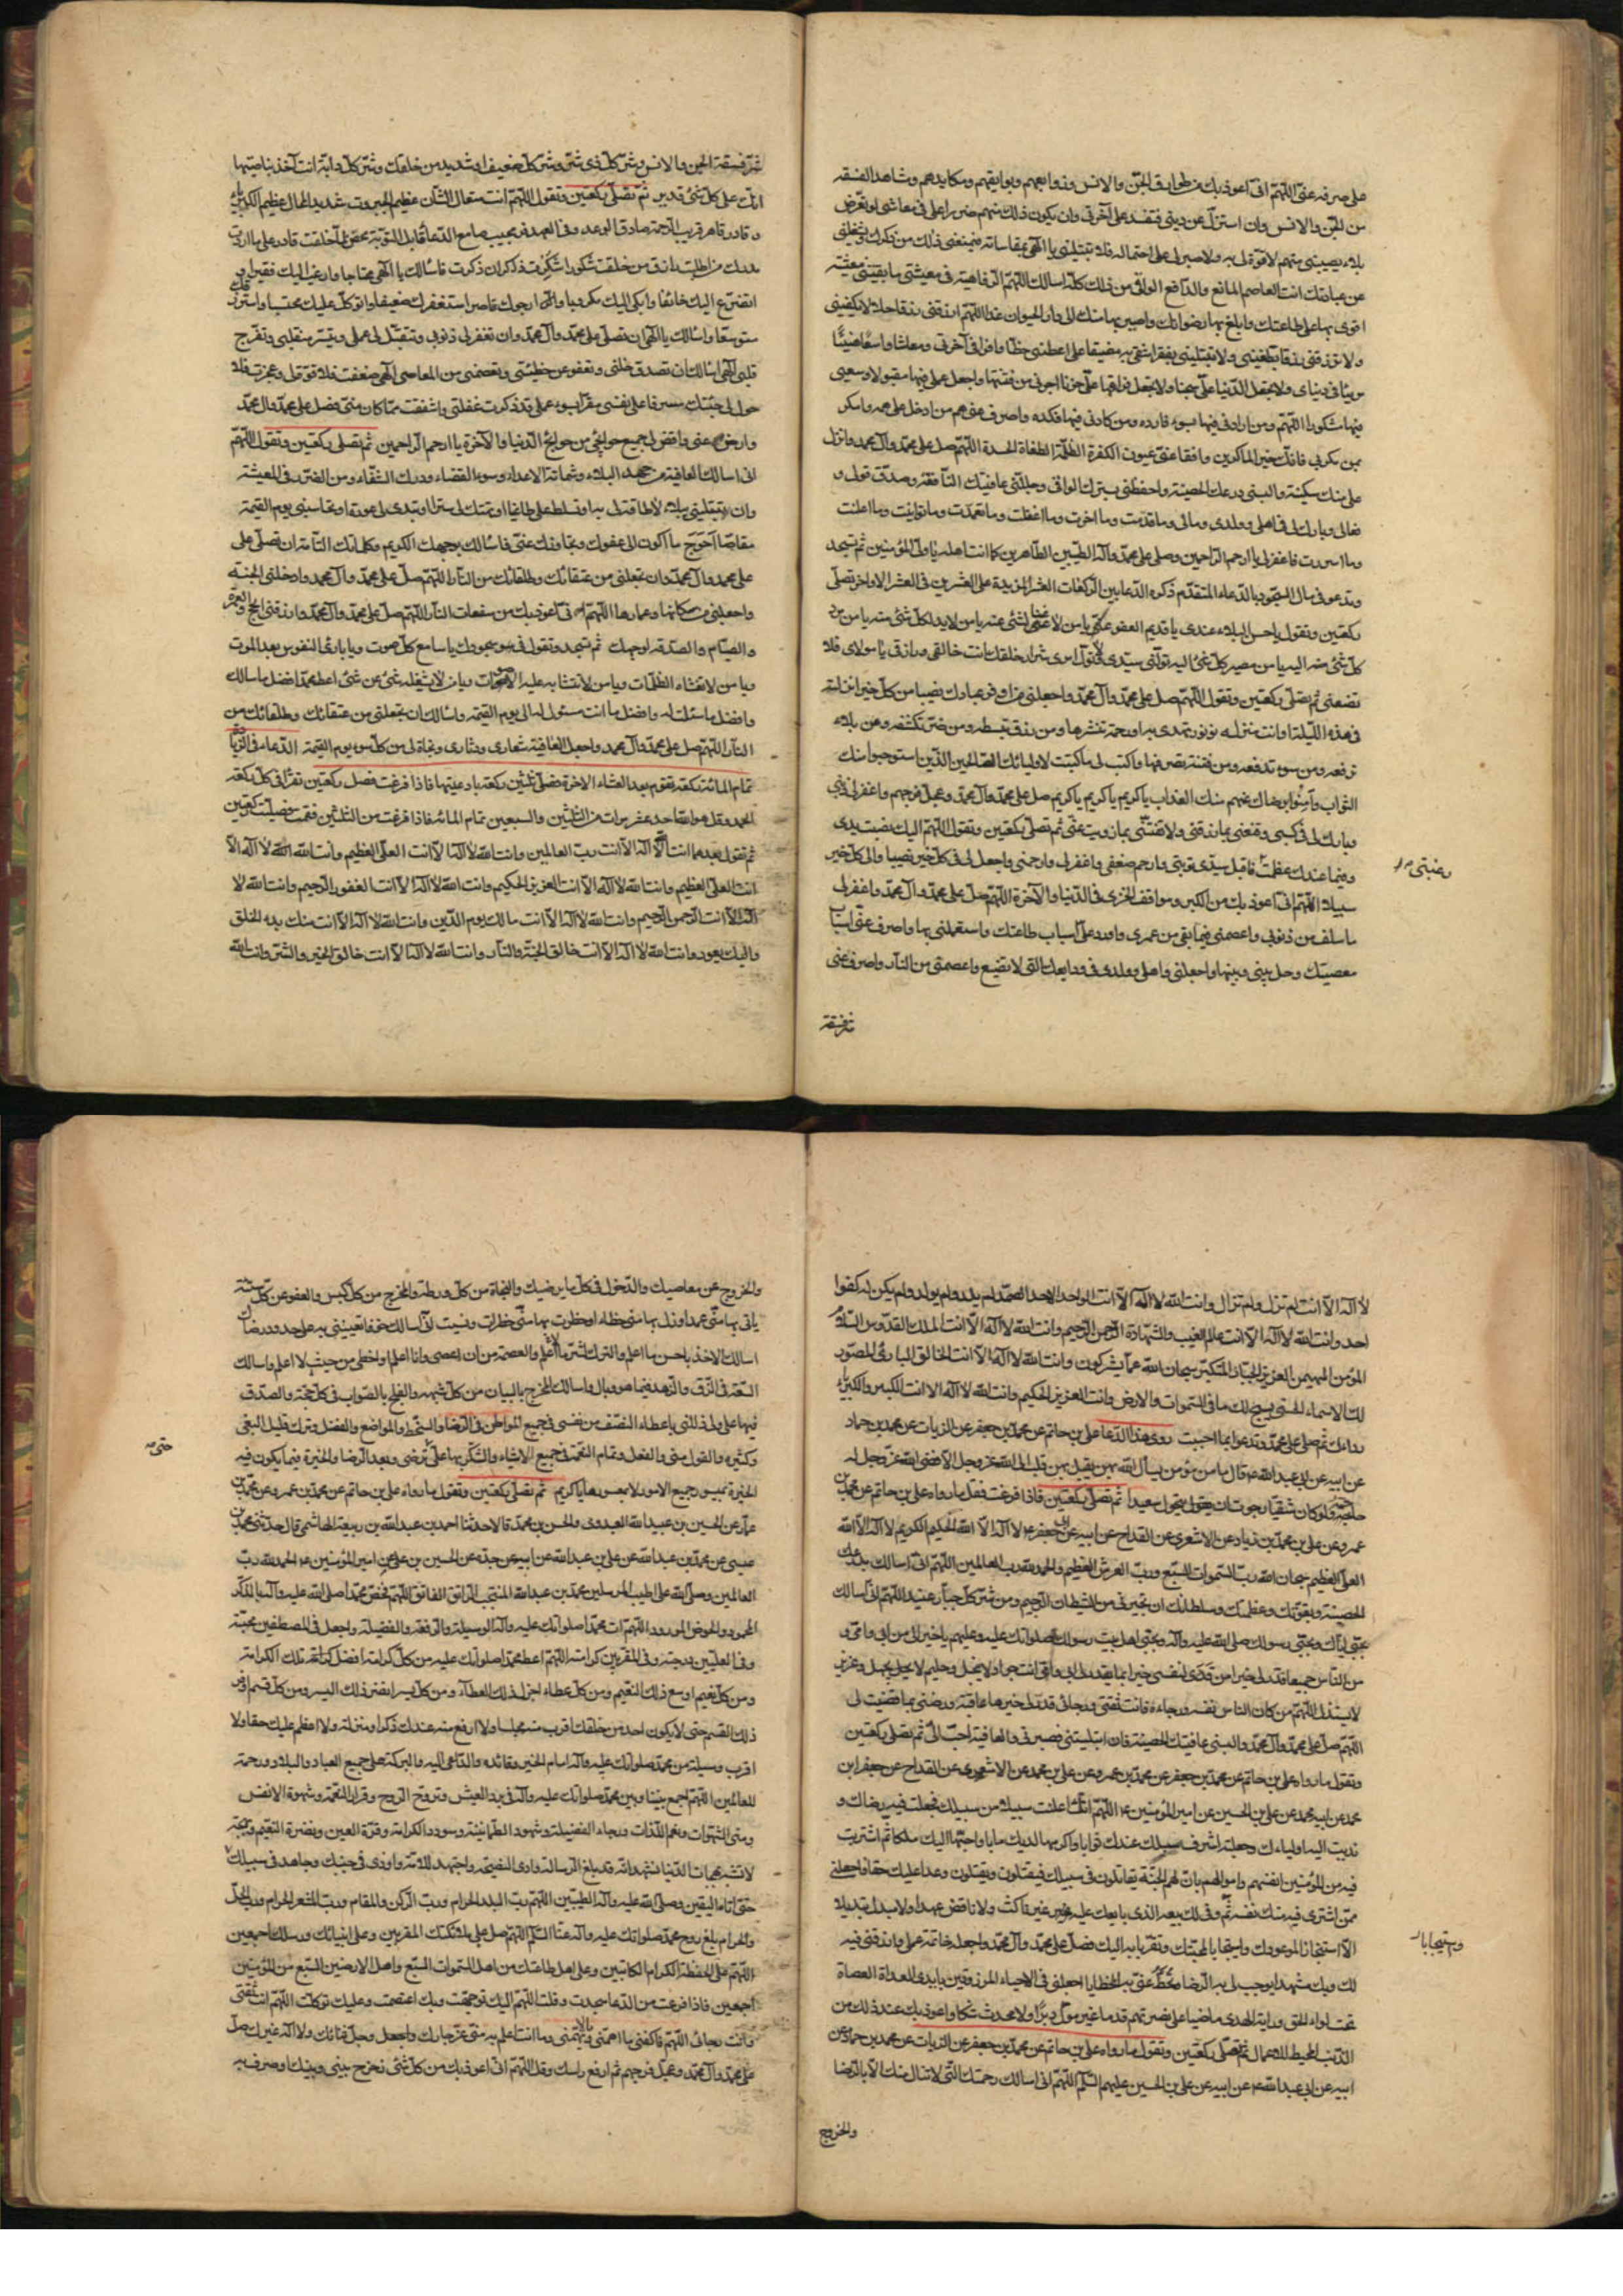 على صرفه عنى اللهم انى اعوذ بك من طوارق الجن والانس وزوابعهم وبوايقهم ومكايدهم ومشاهد الفسقة
من الجن والانس وان استزل عن دينى فتفسد على آخرتى وان يكون ذلك منهم ضررا على فى معاشى او تعرض
بلاء يصيبنى منهم لا قوة لى به ولا صبر لى على احتماله فلا تبتلينى يا الهى بمقاساته فيمنعنى ذلك من ذكرك ويشغلنى
عن عبادتك انت العاصم المانع والدافع الواقى من ذلك كله اسالك اللهم الرفاهية فى معيشتى ما بقيتنى معيشة
اقوى بها على طاعتك وابلغ بها رضوانك واصير بها منك الى دار الحيوان غدا اللهم ارزقنى رزقا حلالا يكفينى
ولا ترزقنى رزقا يطغينى ولا تبتلينى بفقر اشقى به مضيقا على اعطنى حظا وافرا فى آخرتى ومعاشا واسعا هنيئا
مريئا فى دنياى ولا تجعل الدنيا على سجنا ولا تجعل فراقها على حزنا اجرنى من فتنتها واجعل عملى فيها مقبولا وسعيى
فيها مشكورا اللهم ومن ارادنى فيها بسوء فارده ومن كادنى فيها فكده واصرف عنى هم من ادخل على همه وامكر
بمن مكر بى فانك خير الماكرين وافقا عنى عيون الكفرة الظلمة الطغاة الحسدة اللهم صل على محمد وآل محمد وانزل
على منك سكينة والبسنى درعك الحصينة واحفظنى بسترك الواقى وجللنى عافيتك النافعة وصدق قولى و
فعالى وبارك لى فى اهلى وولدى ومالى وما قدمت وما اخرت وما اغفلت وما تعمدت وما توانيت وما اعلنت
وما اسررت فاغفر لى يا ارحم الراحمين وصل على محمد وآله الطيبين الطاهرين كما انت اهله يا ولى المؤمنين ثم تسجد
وتدعو فى حال السجود بالدعاء المتقدم ذكره الدعا بين الركعات العشر المزيدة على العشرين فى العشر الاواخر تصلى
ركعتين وتقول يا حسن البلاء عندى يا قديم العفو عنى يا من لا غنى لشئ عنه يا من لا بد لكل شئ منه يا من مرد
كل شئ اليه يا من مصير كل شئ اليه تولنى سيدى ولا تول امرى شرار خلقك انت خالقى ورازقى يا مولاى فلا
تضيعنى ثم تصلى ركعتين وتقول اللهم صل على محمد وآل محمد واجعلنى من اوفر عبادك نصيبا من كل خير انزلته
فى هذه الليلة او انت منزله من نور تهدى به او رحمة تنشرها ومن رزق تبسطه ومن ضر تكشفه ومن بلاء
ترفعه ومن سوء تدفعه ومن فتنة تصرفها واكتب لى ما كتبت لاوليائك الصالحين الذين استوجبوا منك
الثواب وآمنوا برضاك عنهم منك العذاب يا كريم يا كريم يا كريم صل على محمد وآل محمد وعجل فرجهم واغفر لى ذنبى
وبارك لى فى كسبى وقنعنى بما رزقتنى ولا تفتنى بما زويت عنى ثم تصلى ركعتين وتقول اللهم اليك نصبت يدى
وفيما عندك عظمت فاقبل سيدى توبتى وارحم ضعفى واغفر لى وارحمنى واجعل لى فى كل خير نصيبا والى كل خير
رغبتى صح
سبيلا اللهم انى اعوذ بك من الكبر ومواقف الخزى فى الدنيا والآخرة اللهم صل على محمد وآل محمد واغفر لى
ما سلف من ذنوبى واعصمنى فيما بقى من عمرى واورد على اسباب طاعتك واستعملنى بها واصرف عنى اسباب
معصيتك وحل بينى وبينها واجعلنى واهلى وولدى فى ودايعك التى لا تضيع واعصمنى من النار واصرف عنى
شر فسقة
شر فسقة الجن والانس وشر كل ذى شر وشر كل ضعيف او شديد من خلقك وشر كل دابة انت آخذ بناصيتها
انك على كل شئ قدير ثم تصلى ركعتين وتقول اللهم انت متعال الشان عظيم الجبروت شديد المحال عظيم الكبرياء
قادر قاهر قريب الرحمة صادق الوعد وفى العهد قريب مجيب سامع الدعا قابل التوبة محص لما خلقت قادر على ما اردت
مدرك من طلبت رازق من خلقت شكور ان شكرت ذاكر ان ذكرت فاسالك يا الهى محتاجا وارغب اليك فقيرا و
اتضرع اليك خائفا وابكى اليك مكروبا وارجوك ناصرا استغفرك ضعيفا واتوكل عليك محتسبا واسترزقك
متوسعا واسالك يا الهى ان تصلى على محمد وآل محمد وان تغفر لى ذنوبى وتتقبل لى عملى وتيسر منقلبى وتفرج
قلبى الهى اسالك ان تصدق ظنى وتعفو عن خطيئتى وتعصمنى من المعاصى الهى ضعفت فلا قوة لى وعجزت فلا
حول لى جئتك مسرفا على نفسى مقرا بسوء عملى قد ذكرت غفلتى واشفقت مما كان منى فصل على محمد وآل محمد
وارض عنى واقض لى جميع حوائجى من حوائج الدنيا والآخرة يا ارحم الراحمين ثم تصلى ركعتين وتقول اللهم
انى اسالك العافية من جهد البلاء وشماتة الاعداء وسوء القضاء ودرك الشقاء ومن الضرر فى المعيشة
وان تبتلينى ببلاء لا طاقة لى به او تسلط على طاغيا او تهتك لى سترا او تبدى لى عورة او تحاسبنى يوم القيمة
مقاصا احوج ما اكون الى عفوك وتجاوزك عنى فاسالك بوجهك الكريم وكلماتك التامة ان تصلى على
على محمد وآل محمد وان تجعلنى من عتقائك وطلقائك من النار اللهم صل على محمد وآل محمد وادخلنى الجنة
واجعلنى من سكانها وعمارها اللهم انى اعوذ بك من سفعات النار اللهم صل على محمد وآل محمد وارزقنى الحج والعمرة
والصيام والصدقة لوجهك ثم تسجد وتقول فى سجودك يا سامع كل صوت ويا بارئ النفوس بعد الموت
ويا من لا تغشاه الظلمات ويا من لا تتشابه عليه الاصوات ويا من لا يشغله شئ عن شئ اعط محمدا افضل ما سالك
وافضل ما سئلت له وافضل ما انت مسئول له الى يوم القيمة واسالك ان تجعلنى من عتقائك وطلقائك من
النار اللهم صل على محمد وآل محمد واجعل العافية شعارى ودثارى ونجاة لى من كل سوء يوم القيمة الدعاء فى الزيادة
تمام المائة ركعة تقوم بعد العشاء الاخرة فتصلى ثلثين ركعة بادعيتها فاذا فرغت فصل ركعتين تقرأ فى كل ركعة
الحمد وقل هو الله احد عشر مرات من الثلثين والسبعين تمام المائة فاذا فرغت من الثلثين فقمت فصليت ركعتين
ثم تقول بعدهما انت الله لا اله الا انت رب العالمين وانت الله لا اله الا انت العلى العظيم وانت الله لا اله الا
انت العلى العظيم وانت الله لا اله الا انت العزيز الحكيم وانت الله لا اله الا انت الغفور الرحيم وانت الله لا
اله الا انت الرحمن الرحيم وانت الله لا اله الا انت مالك يوم الدين وانت الله لا اله الا انت منك بدء الخلق
واليك يعود وانت الله لا اله الا انت خالق الجنة والنار وانت الله لا اله الا انت خالق الخير والشر وانت الله
لا اله الا انت لم تزل ولم تزال وانت الله لا اله الا انت الواحد الاحد الصمد لم يلد ولم يولد ولم يكن له كفوا
احد وانت الله لا اله الا انت عالم الغيب والشهادة الرحمن الرحيم وانت الله لا اله الا انت الملك القدوس السلام
المؤمن المهيمن العزيز الجبار المتكبر سبحان الله عما يشركون وانت الله لا اله الا انت الخالق البارئ المصور
لك الاسماء الحسنى يسبح لك ما فى السموات والارض وانت العزيز الحكيم وانت الله لا اله الا انت الكبير والكبرياء
رداءك ثم صلى على محمد وتدعو بما احببت روى هذا الدعا على بن حاتم عن محمد بن جعفر عن الزيات عن محمد بن حماد
عن ابيه عن ابى عبد الله ع قال ما من مؤمن يسال الله بهن يقبل بهن قلبه الى الله عز وجل الا قضى الله عز وجل له
حاجته ولو كان شقيا رجوت ان يحول سعيدا ثم تصلى ركعتين فاذا فرغت فقل ما رواه على بن حاتم عن محمد بن
عمرو عن على بن محمد بن زياد عن الاشعرى عن القداح عن ابيه عن ابى جعفر ع لا اله الا الله الحكيم الكريم لا اله الا الله
العلى العظيم سبحان الله رب السموات السبع ورب العرش العظيم والحمد لله رب العالمين اللهم انى اسالك بدرعك
الحصينة وبقوتك وعظمتك وسلطانك ان تجيرنى من الشيطان الرجيم ومن شر كل جبار عنيد اللهم انى اسالك
بحبى اياك وبحبى رسولك صلى الله عليه وآله وبحبى اهل بيت رسولك صلواتك عليه وعليهم يا خيرا لى من ابى وامى و
من الناس جميعا اقدر لى خيرا من قدرى لنفسى وخيرا مما يقدر لى ابى وامى انت جواد لا يبخل وحليم لا يجهل وعزيز
لا يستذل اللهم من كان الناس ثقته ورجاءه فانت ثقتى ورجائى قدر لى خيرها عاقبة ورضنى بما قضيت لى
اللهم صل على محمد وآل محمد والبسنى عافيتك الحصينة فان ابتليتنى فصبرنى والعافية احب الى ثم تصلى ركعتين
وتقول ما رواه على بن حاتم عن محمد بن جعفر عن محمد بن عمرو عن على بن محمد عن الاشعرى عن القداح عن جعفر بن
محمد عن ابيه محمد عن على بن الحسين عن امير المؤمنين ع اللهم انك اعلنت سبيلا من سبيلك فجعلت فيه رضاك و
ندبت اليه اولياءك وجعلته اشرف سبلك عندك ثوابا واكرمها لديك مآبا واحبها اليك مسلكا ثم اشتريت
فيه من المؤمنين انفسهم واموالهم بان لهم الجنة يقاتلون فى سبيلك فيقتلون ويقتلون وعدا عليك حقا واجعلنى
ممن اشترى فيه منك نفسه ثم وفى لك ببيعه الذى بايعك عليه غير ناكث ولا ناقض عهدا ولا مبدل تبديلا
الا استنجازا لموعودك واستيجابا لمحبتك وتقربا به اليك فصل على محمد وآل محمد واجعله خاتمة عملى وارزقنى فيه
لك وبك مشهدا توجب لى به الرضا وتحط عنى به الخطايا اجعلنى فى الاحياء المرزوقين بايدى العداة العصاة
تحت لواء الحق وراية الهدى ماضيا على نصرتهم قدما غير مول دبرا ولا محدث شكا واعوذ بك عند ذلك من
الذنب المحيط للاعمال ثم تصلى ركعتين وتقول ما رواه على بن حاتم عن محمد بن جعفر عن الزيات عن محمد بن حماد عن
ابيه عن ابى عبد الله ع عن ابيه عن على بن الحسين عليهم السلم اللهم انى اسالك رحمتك التى لا تنال منك الا بالرضا
والخروج
والخروج عن معاصيك والدخول فى كل ما يرضيك والنجاة من كل ورطة والمخرج من كل كبر والعفو عن كل سيئة
ياتى بها منى عمد او زل بها منى خطاء او خطرت بها منى خطرات ونسيت ان اسالك خوفا تعيننى به على حدود رضاك
اسالك الاخذ باحسن ما اعلم والترك لشر ما اعلم والعصمة من ان اعصى وانا اعلم او اخطى من حيث لا اعلم واسالك
السعة فى الرزق والزهد فيما هو وبال واسالك المخرج بالبيان من كل شبهة والفلج بالصواب فى كل حجة والصدق
فيها على ولى ذللنى باعطاء النصف من نفسى فى جميع المواطن فى الرضا والسخط والتواضع والفضل وترك قليل البغى
وكثيره والقول منى والفعل وتمام النعمة فى جميع الاشياء والشكر بها على ترضى وبعد الرضا والخيرة فيما يكون فيه
حتى صح
الخيرة بميسور جميع الامور لا بمعسورها يا كريم ثم تصلى ركعتين وتقول ما رواه على بن حاتم عن محمد بن عمرو عن محمد بن
عيسى عن محمد بن عبد الله عن على بن عبد الله عن ابيه عن جده عن الحسين بن على عن امير المؤمنين ع الحمد لله رب
العالمين وصلى الله على اطيب المرسلين محمد بن عبد الله المنتجب الراتق الفاتق اللهم فخص محمدا صلى الله عليه وآله بالذكر
المحمود والحوض المورود اللهم ات محمدا صلواتك عليه وآله الوسيلة والرفعة والفضيلة واجعل فى المصطفين محبته
وفى العليين درجته وفى المقربين كرامته اللهم اعط محمدا صلواتك عليه من كل كرامة افضل تلك الكرامة
ومن كل نعيم اوسع ذلك النعيم ومن كل عطاء اجزل ذلك العطاء ومن كل يسر انضر ذلك اليسر ومن كل قسم اوفر
ذلك القسم حتى لا يكون احد من خلقك اقرب منه مجلسا ولا ارفع منه عندك ذكرا ومنزلة ولا اعظم عليك حقا ولا
اقرب وسيلة من محمد صلواتك عليه وآله امام الخير وقائده والداعى اليه والبركة على جميع العباد والبلاد ورحمة
للعالمين اللهم اجمع بيننا وبين محمد صلواتك عليه وآله فى برد العيش وتروح الروح وقرار النعمة وشهوة الانفس
ومنى الشهوات ونعم اللذات ورجاء الفضيلة وشهود الطمانينة وسودد الكرامة وقرة العين ونضرة النعيم وبهجة
لا تشبه بهجات الدنيا نشهد انه قد بلغ الرسالة وادى النصيحة واجتهد للامة واوذى فى جنبك وجاهد فى سبيلك
حتى اتاه اليقين وصلى الله عليه وآله الطيبين اللهم رب البلد الحرام ورب الركن والمقام ورب المشعر الحرام ورب الحل
والحرام بلغ روح محمد صلواتك عليه وآله عنا السلم اللهم صل على ملائكتك المقربين وعلى انبيائك ورسلك اجمعين
اللهم على الحفظة الكرام الكاتبين وعلى اهل طاعتك من اهل السموات السبع واهل الارضين السبع من المؤمنين
اجمعين فاذا فرغت من الدعا سجدت وقلت اللهم اليك توجهت وبك اعتصمت وعليك توكلت اللهم انت ثقتى
وانت رجائى اللهم فاكفنى ما اهمنى وما لا يهمنى وما انت اعلم به منى عز جارك وجل ثنائك ولا اله غيرك صل
على محمد وآل محمد وعجل فرجهم ثم ارفع راسك وقل اللهم انى اعوذ بك من كل شئ زحزح بينى وبينك او صرف به